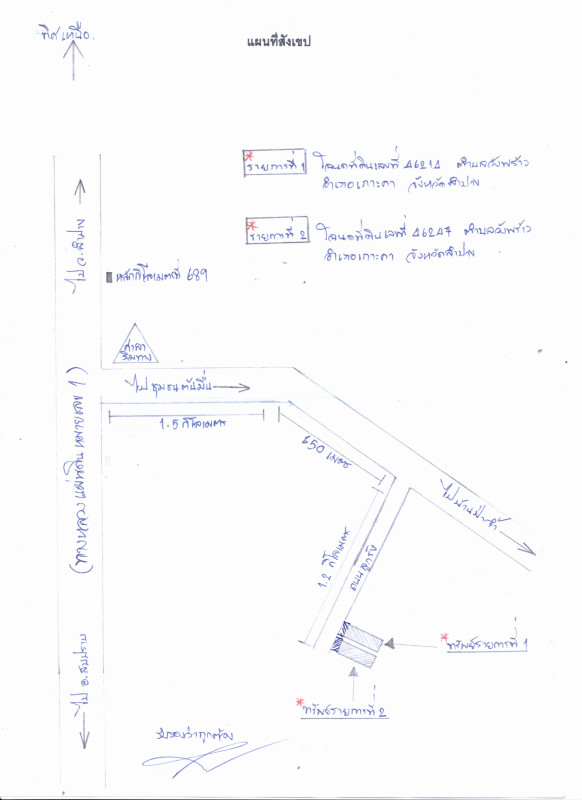 ทิศเหนือ.
แผนที่สังเขป
*รายการที่ 1 โฉนดที่ดินเลขที่ 46214 ตำบลวังพร้าว
อำเภอเกาะคา จังหวัดลำปาง
*รายการที่ 2 โฉนดที่ดินเลขที่ 46247 ตำบลวังพร้าว
อำเภอเกาะคา จังหวัดลำปาง
ไป จ.ลำปาง
หลักกิโลเมตรที่ 689
ศาลา
ริมทาง
ไปชุมชนต้นมื่น
1.5 กิโลเมตร
650 เมตร
(ทางหลวงแผ่นดินหมายเลข 1)
1.2 กิโลเมตร
ถนนลูกรัง
*ทรัพย์รายการที่ 1
*ทรัพย์รายการที่ 2
ไป อ.สบปราบ
รับรองว่าถูกต้อง